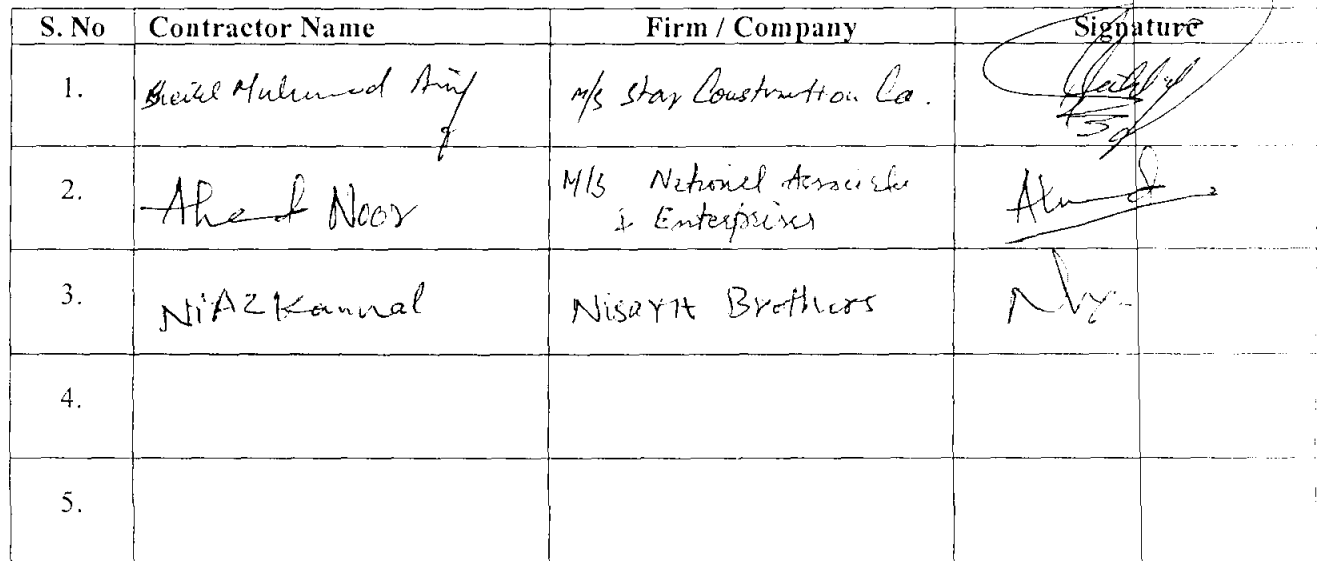 S. No Contractor Name Firm / Company Signature
1. Muhammad Arif M/S Star Construction Co.
2. Ahmed Noor M/S National Associates
& Enterprises
3. NiAZ Kamal Nisar Brothers
4.
5.